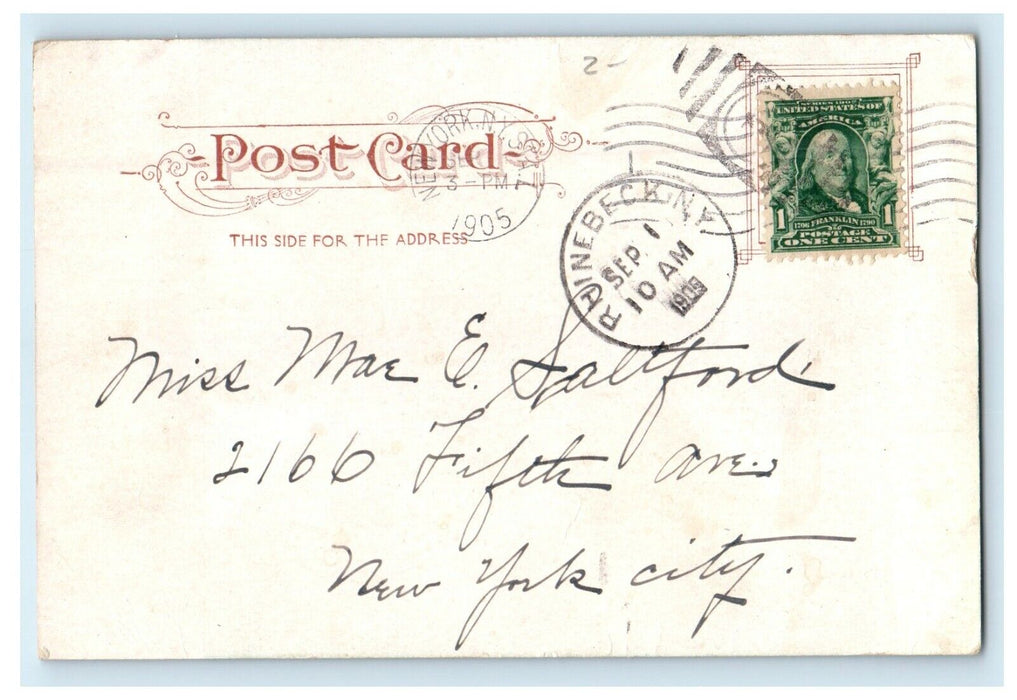 2-
Post Card
NEW YORK, N.Y.
3 - PM
1905
THIS SIDE FOR THE ADDRESS
RHINEBECK N.Y.
SEP 1
10 AM
SERIES 1902
UNITED STATES OF
AMERICA
1 1706 FRANKLIN 1790 1
POSTAGE
ONE CENT
Miss Mae E. Saltford.
2166 Fifth Ave.
New York City.